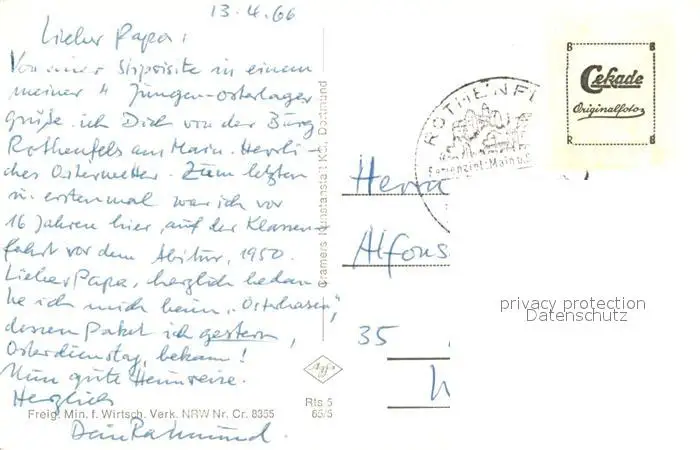 13.4.66
Lieber Papa,
Von einer Stippvisite in einem
meiner 4 Jungen-Osterlager
grüße ich Dich von der Burg
Rothenfels am Main. Herrli-
ches Osterwetter. Zum letzten
u. erstenmal war ich vor
16 Jahren hier, auf der Klassen-
fahrt vor dem Abitur, 1950.
Lieber Papa, herzlich bedan-
ke ich mich beim „Osterhasen",
dessen Paket ich gestern,
Osterdienstag, bekam!
Nun gute Heimreise.
Herzlich
Dein Raimund.
Freig. Min. f. Wirtsch. Verk. NRW Nr. Cr. 8355
Cramers Kunstanstalt KG, Dortmund
Agfa
Rts 5
65/5
ROTHENFE
Ferienziel-Main u.S
B B
Cekade
Originalfoto
R B
Herrn
Alfons
35
privacy protection
Datenschutz